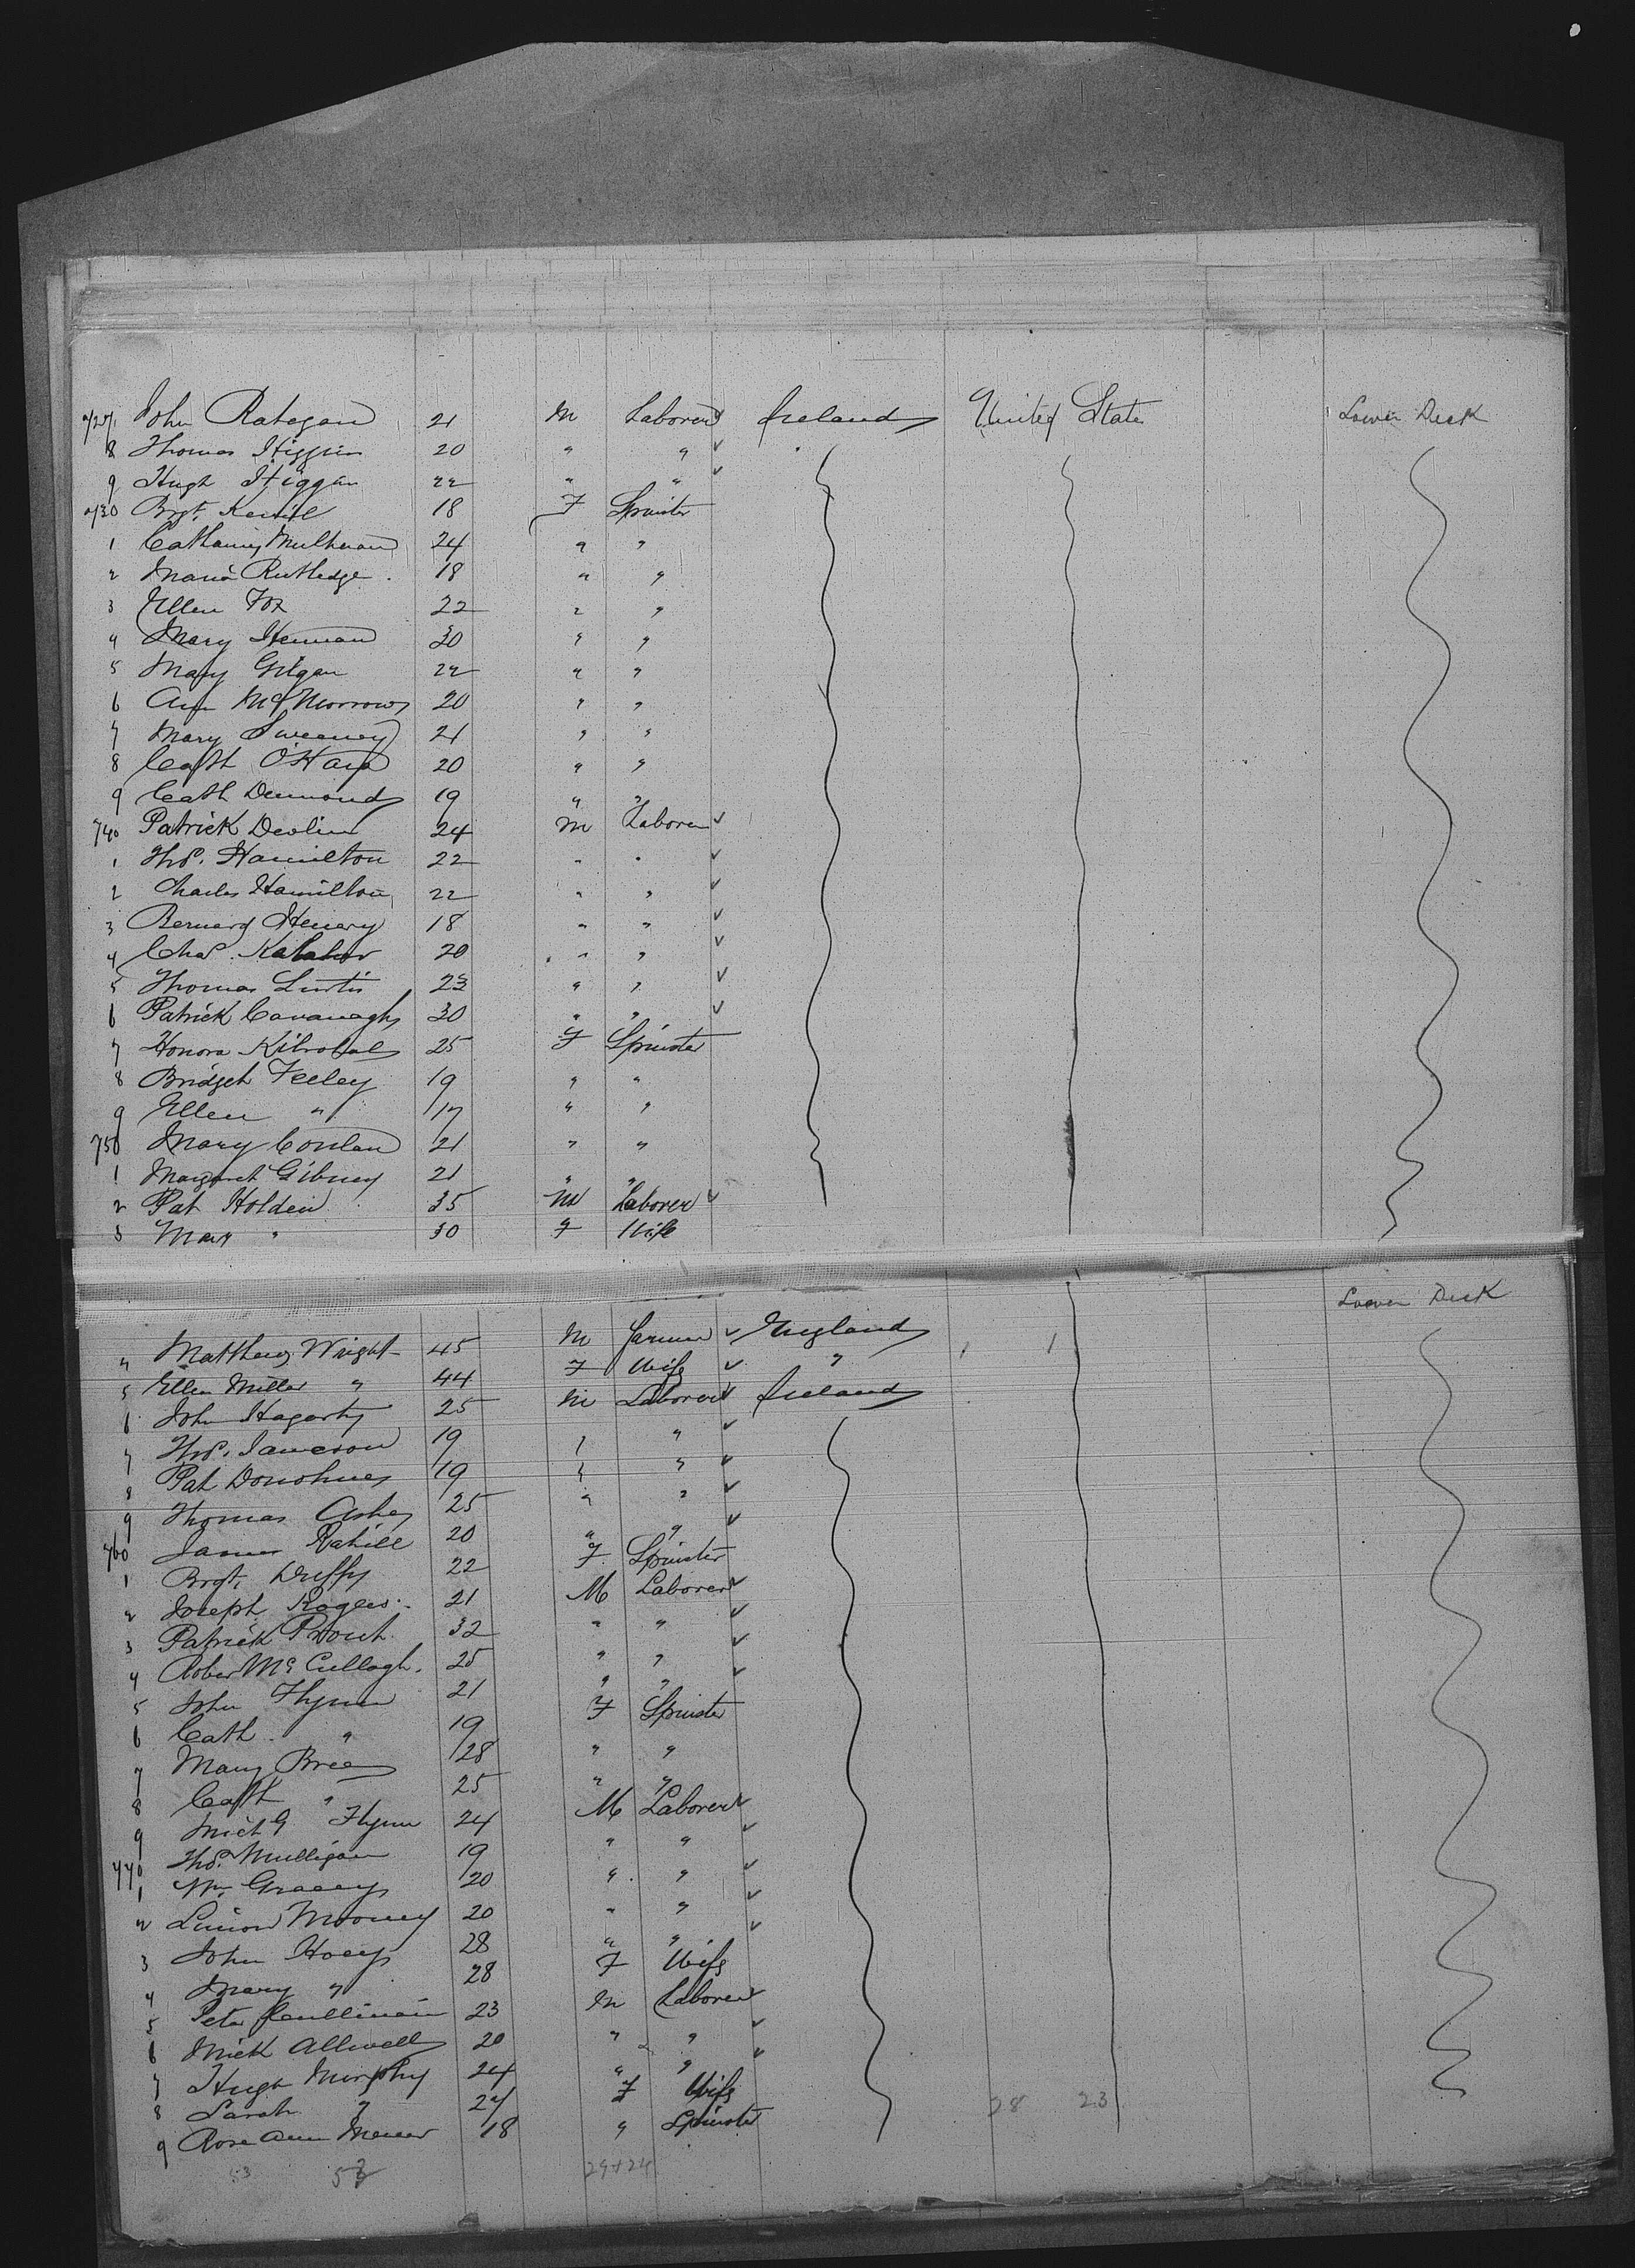 727 John Rategan 21 M Laborer Ireland United States Lower Deck
8 Thomas Higgins 20 " "
9 Hugh Higgins 22 " "
730 Brgt. 18 F Spinster
1 24 " "
2 Maria Rutledge 18 " "
3 Ellen Fox 22 " "
4 Mary 30 " "
5 Mary Gilgan 22 " "
6 Ann McMorrow 20 " "
7 Mary Sweeney 21 " "
8 Cath O'Hara 20 " "
9 Cath 19 " "
740 Patrick Devlin 24 M Laborer
1 Thos. Hamilton 22 " "
2 Charles Hamilton 22 " "
3 Bernard Henery 18 " "
4 Chas. 20 " "
5 Thomas 23 " "
6 Patrick Cavanagh 30 " "
7 Honora 25 F Spinster
8 Bridget Feeley 19 " "
9 Ellen " 17 " "
750 Mary Conlan 21 " "
1 Margaret Gibney 21 " "
2 Pat Holden 35 M Laborer
3 Mary " 30 F Wife
Lower Deck
4 Matthew Wright 45 M Farmer England
5 Ellen Miller " 44 F Wife "
6 John Hagerty 25 M Laborer Ireland
7 Thos. Jameson 19 " "
8 Pat Donohue 19 " "
9 Thomas 25 " "
760 James Rahill 20 " "
1 Brgt. Duffy 22 F Spinster
2 Joseph Rogers 21 M Laborer
3 Patrick Prout 32 " "
4 Rober McCullagh. 25 " "
5 John Flynn 21 " "
6 Cath. " 19 F Spinster
7 Mary Breen 28 " "
8 Cath " 25 " "
9 Flynn 24 M Laborer
770 Thos. Mulligan 19 " "
1 Wm. Gracey 20 " "
2 Mooney 20 " "
3 John Hoey 28 " "
4 Mary " 28 F Wife
5 Peter 23 M Laborer
6 Mick Allwell 20 " "
7 Hugh Murphy 24 " "
8 Sarah " 27 F Wife
9 Rose Ann 18 " Spinster
28 23
53 53 29+24